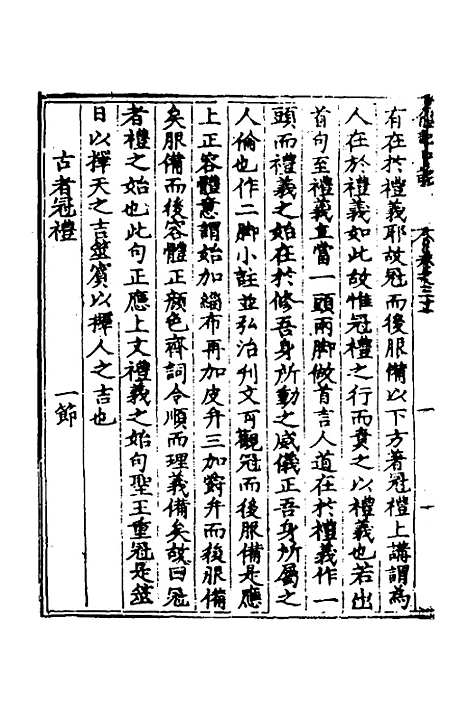 有在於禮義耶故冠而後服備以下方著冠禮上講謂為
人在於禮義如此故惟冠禮之行而責之以禮義也若出
首句至禮義直當一頭兩脚做首言人道在於禮義作一
頭而禮義之始在於修吾身所動之威儀正吾身所屬之
人倫也作二脚小註並弘治刋文可觀冠而後服備是應
上正容體意謂始加緇布再加皮弁三加爵弁而後服備
矣服備而後容體正顏色齊詞令順而理義備矣故曰冠
者禮之始也此句正應上文禮義之始句聖王重冠是筮
日以擇天之吉筮賓以擇人之吉也
古者冠禮 一節